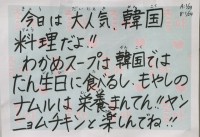 今日は大人気、韓国
料理だよ!!
わかめスープは韓国では
たん生日に食べるし、もやしの
ナムルは栄養まんてん!!ヤン
ニョムチキンと楽しんでね!!